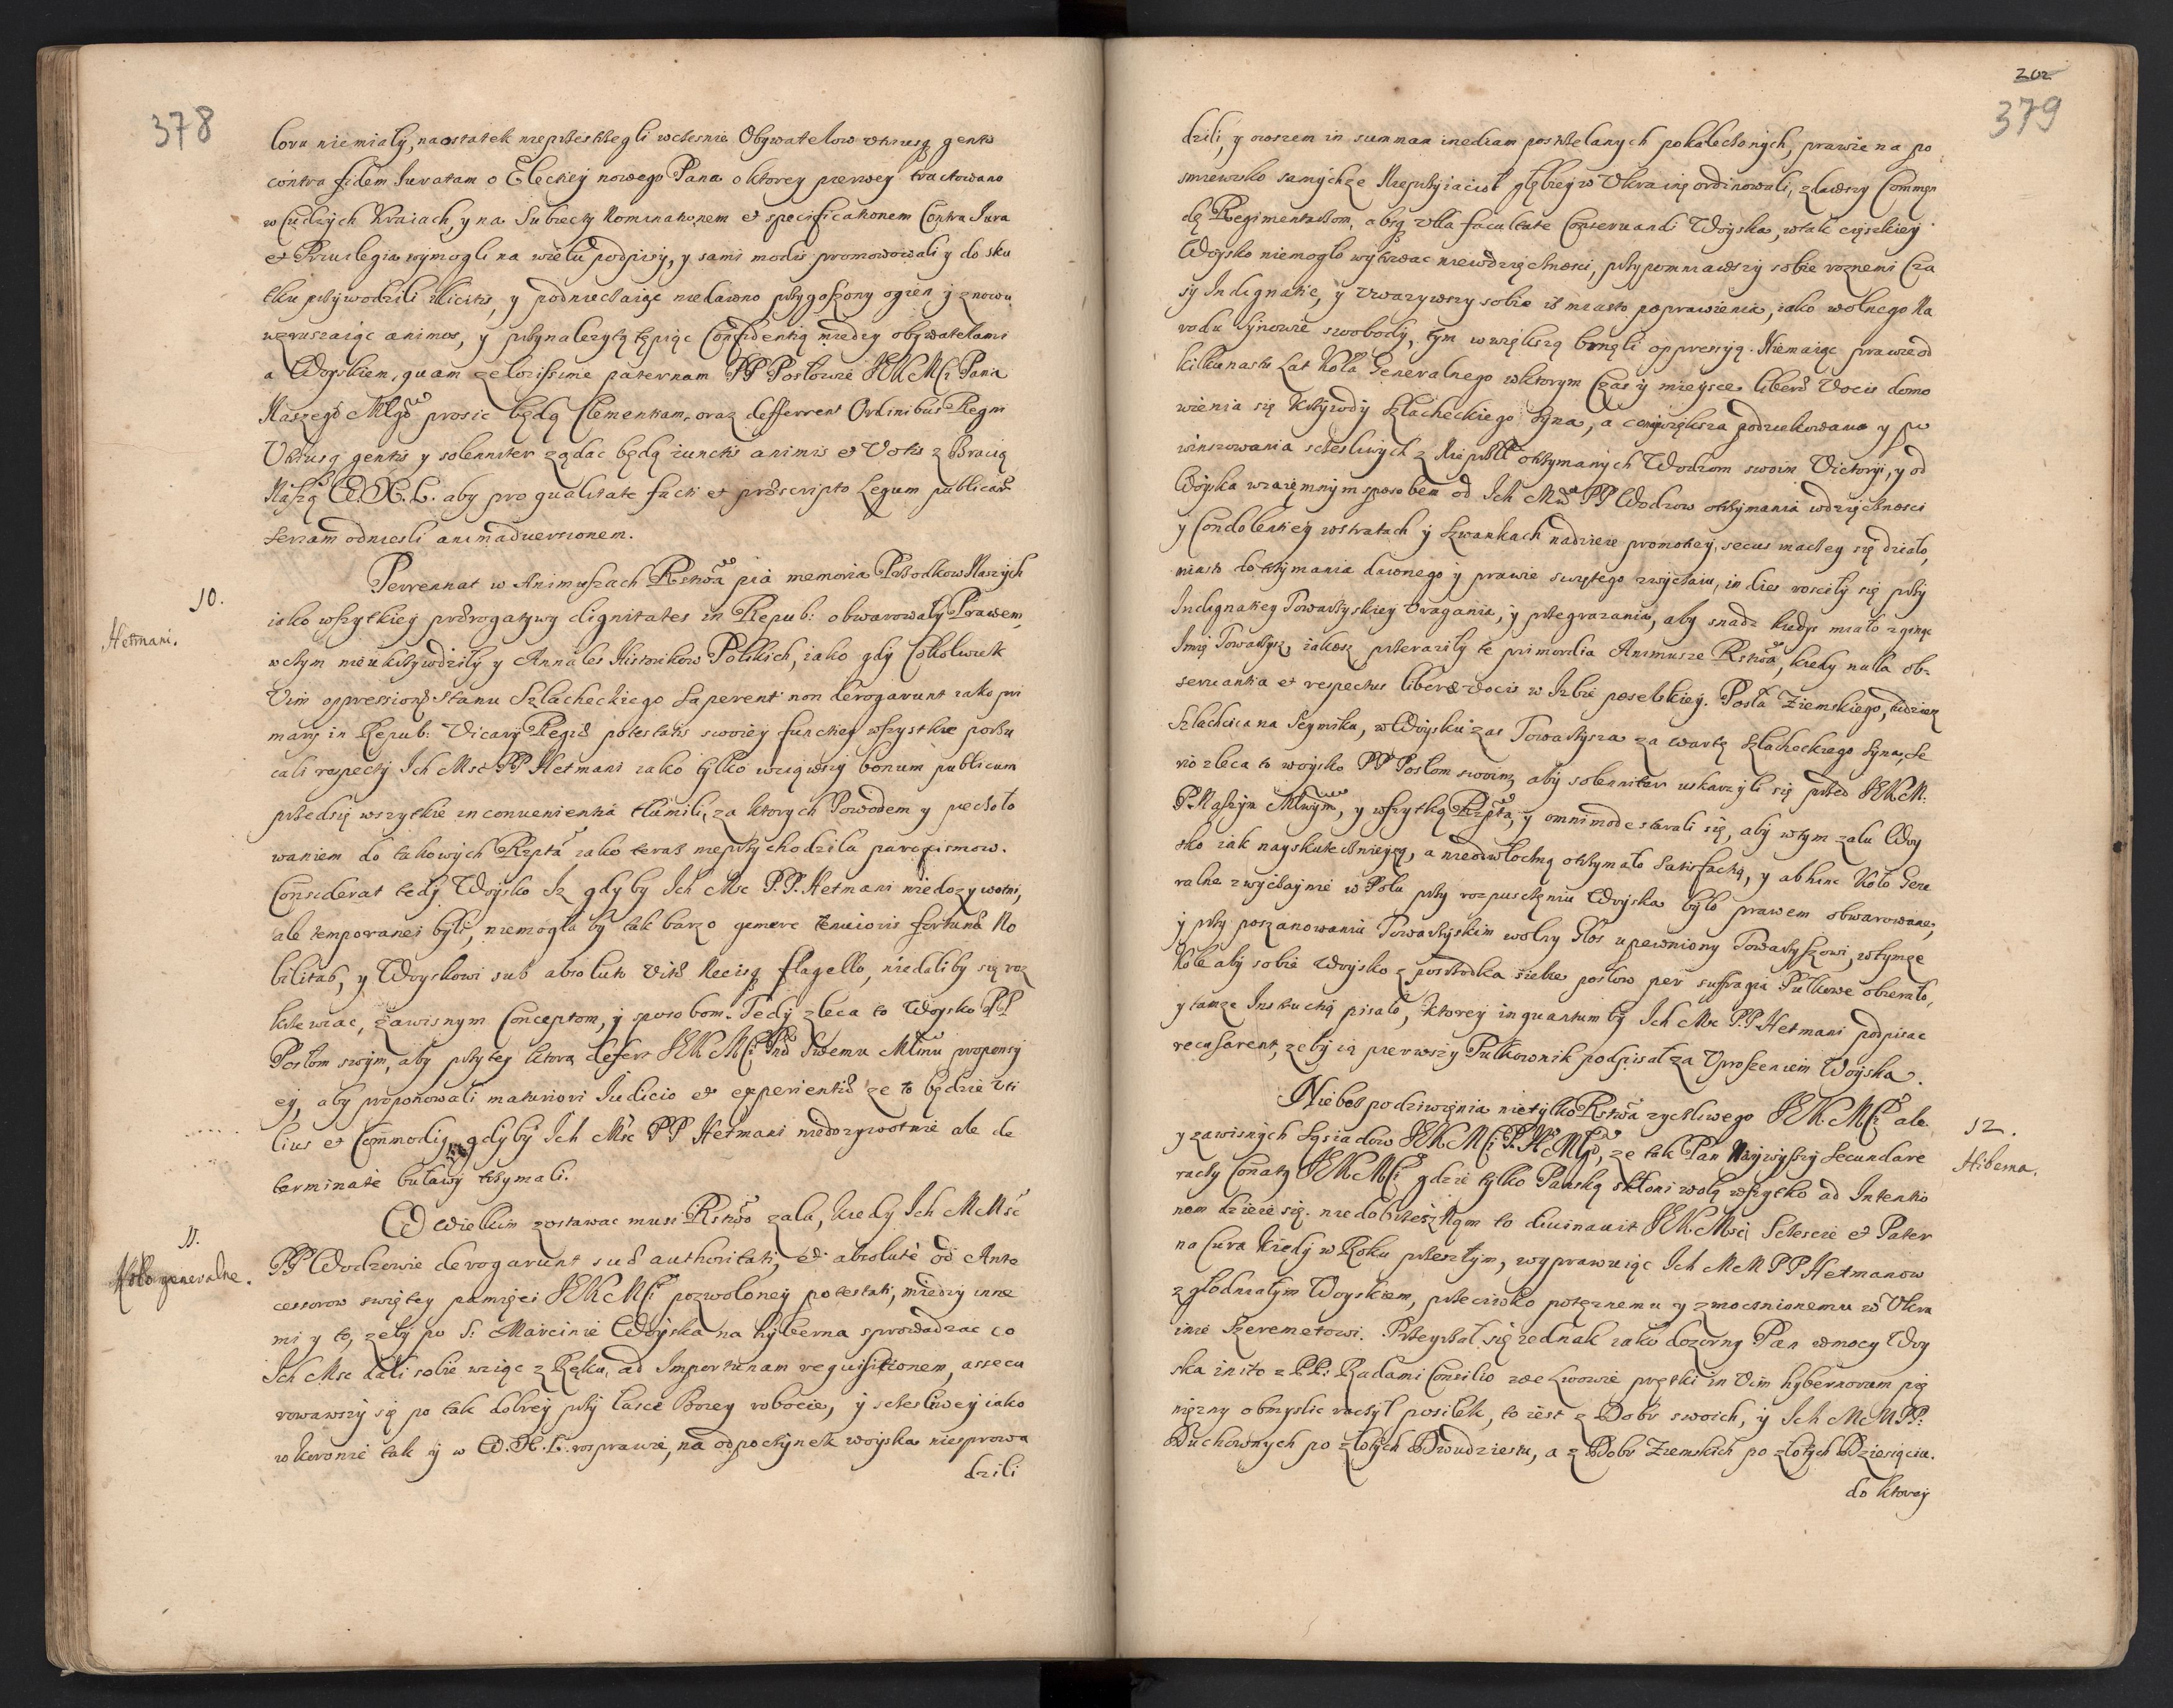 378
loru niemiały, na ostatek nieprzestrzegli wczesnie Obywatelow utriusq gentis
contra fidem Juratam o Elekcyey nowego Pana o ktorey pierwey tractowano
w Cudzych Kraiach, y na Subiecty Nominationem et specificationem Contra Jura
et Priuilegia wymogli na wielu podpisy, y sami modis promowowali y do sku
tku przywodzili illicitis, y podniecaiąc niedawno przygaszony ogien y znowu
wzruszaiąc animos, y przynależytą tępiąc Confidentią między obywatelami
a Woyskiem, quam zelosissime paternam PP Posłowie JEK Mści Pana
Naszego Młgo prosic będą Clementiam, oraz defferrent Ordinibus Regni
Utriusq gentis y solenniter ządac będą iunctis animis et Votis z Bracią
Naszą W. X. L. aby pro qualitate facti et praescripto Legum publicam
seriam odniesli animaduersionem.
10.
Hetmani.
Perennat w Animuszach Rstwa pia memoria Przodkow Naszych
iako wszytkiey praerogatywy dignitates in Repub: obwarowały Prawem,
w czym nieukrzywdziły y Annales Historikow Polskich, iako gdy Cokolwiek
Vim oppressionis Stanu Szlacheckiego saperent non derogarunt iako pri
marij in Repub: Vicarij Regiae potestatis swoiey functiey wszystkie porzu
cali respecty Ich Mść PP Hetmani iako tylko wziąwszy bonum publicum
przedsię wszytkie inconuenientia tłumili, za ktorych Powodem y pieczoło
waniem do takowych Rzpta iako teraz nieprzychodziła paroxismow.
Considerat tedy Woysko Iz gdyby Ich Mść P.P. Hetmani niedozywotni,
ale temporanei byli, niemogła by tak barzo gemere tenuioris fortunae No
bilitas, y Woyskowi sub absoluto Vitae Necisq flagello, niedaliby się roz
krzewiac, zawisnym Conceptom, y sposobom. Tedy zleca to Woysko PP
Posłom swym, aby przy tey ktora defert JEK Mści Pnu Swemu Młmu propensy
ey, aby proponowali maturiori Judicio et experientiae ze to będzie uti
lius et Commodius, gdyby Ich Mść PP Hetmani niedozywotnie ale de
terminate buławy trzymali.
11.
Koło generalne.
W wielkim zostawac musi Rstwo zalu, kiedy Ich MMść
PP Wodzowie derogarunt suae authoritati, et absolute od Ante
cessorow swiętey pamięci JEK Mści pozwoloney potestati, między inne
mi y to, zeby po S: Marcinie Woyska na hyberna sprowadzac co
Ich Mść dali sobie wziąc z Ręku, ad Importunam requisitionem, assecu
rowawszy się po tak dobrey przy łasce Bozey robocie, y szczesliwey iako
w Koronie tak y w W. X. L. rosprawie, na odpoczynek woyska niesprowa
dzili
202
379
dzili, y owszem in summam inediam postrzelanych pokaleczonych, prawie na po
smiewisko samychze Nieprzyiacioł głębiey w Ukrainę ordinowali, zdawszy Commen
dę Regimentarzom, absq ulla facultate Conseruandi Woyska, w tak cięzkiey
Woysko niemogło wytrwac niewdzięcznosci, przypomniawszy sobie roznemi Cza
sy Indignatie, y Uwazywszy sobie iz miasto poprawienia, iako wolnego Na
rodu Synowie swobody, tym w większą brnęli oppressyą. Niemaiąc prawie od
kilkunastu Lat Koła Generalnego w ktorym Czas y mieysce liberae Vocis domo
wienia się Krzywdy Szlacheckiego Syna, a co większa podziekowania y po
winszowania szczesliwych z Nieprzla otrzymanych Wodzom swoim Victoryi, y od
Woyska wzaiemnym sposobem od Ich Mw PP Wodzow otrzymania wdzięcznosci
y Condolentiey w stratach y Szwankach nadzieie promotiey, secus inaczey się działo,
miasto dotrzymania dawnego y prawie swiętego zwyczaiu, in dies rosciły się przy
Indignatiey Towarzyskiey Uragania, y przegrazania, aby snadz kiedys miało zginąc
Imię Towarzysz, iakosz przeraziły te primordia Animusze Rstwa, kiedy nulla ob-
seruantia et respectus liberae vocis w Izbie poselskiey. Posła Ziemskiego, tudziez
Szlachcica na Seymiku, w Woysku zas Towarzysza za wartę Szlacheckiego Syna, Se
rio zleca to woysko PP Posłom swoim, aby solenniter uskarzyli się przed JEKM:
P. Naszym Młwym, y wszytką Rzptą, y omnimode starali się, aby w tym zalu Woy
sko iak nayskuteczniejszą, a nieodwłoczną otrzymało Satisfactią, y abhinc Koło Gene
ralne zwyczaynie w Polu przy rozpuszczeniu Woyska było prawem obwarowane,
y przy poszanowaniu Towarzyskim wolny Głos upewniony Towarzyszowi, w tymze
Kole aby sobie Woysko z posrzodka siebie posłow per suffragia Pułkowe obierało,
y tamze Instructią pisało, ktorey inquantum by Ich Mść PP Hetmani podpisac
recusarent, zeby ią pierwszy Pułkownik podpisał za Uproszeniem Woyska.
12.
Hiberna.
Niebez podziwienia nietylko Rstwa zyczliwego JEK Mści ale
y zawisnych Sąsiadow JEK Mści P. N. Młgo, ze tak Pan Naywyszszy Secundare
raczy Conaty JEK Mści gdzie tylko Panską skłoni wolą wszytko ad Intentio
nem dzieie się. niedobrzesz Nam to diuinauit JEK Mści Szczescie et Pater
na Cura kiedy w Roku przeszłym, wyprawuiąc Ich MM PP Hetmanow
zgłodniałym Woyskiem, przeciwko potęznemu y zmocnionemu w Ukra
inie Szeremetowi. Przeyrzał się iednak iako dozorny Pan w mocy Woy
ska inito z PP: Radami Consilio we Lwowie prętki in Vim hybernorum pię
nięzny obmyslic raczył posiłek, to iest z Dobr swoich, y Ich MM PP:
Duchownych po złotych Dwudziestu, a z Dobr Ziemskich po złotych Dziesiąciu.
do ktorey